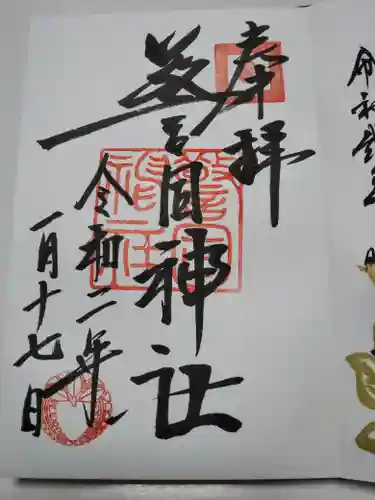 奉拝
警固神社
令和二年
一月十七日
令和